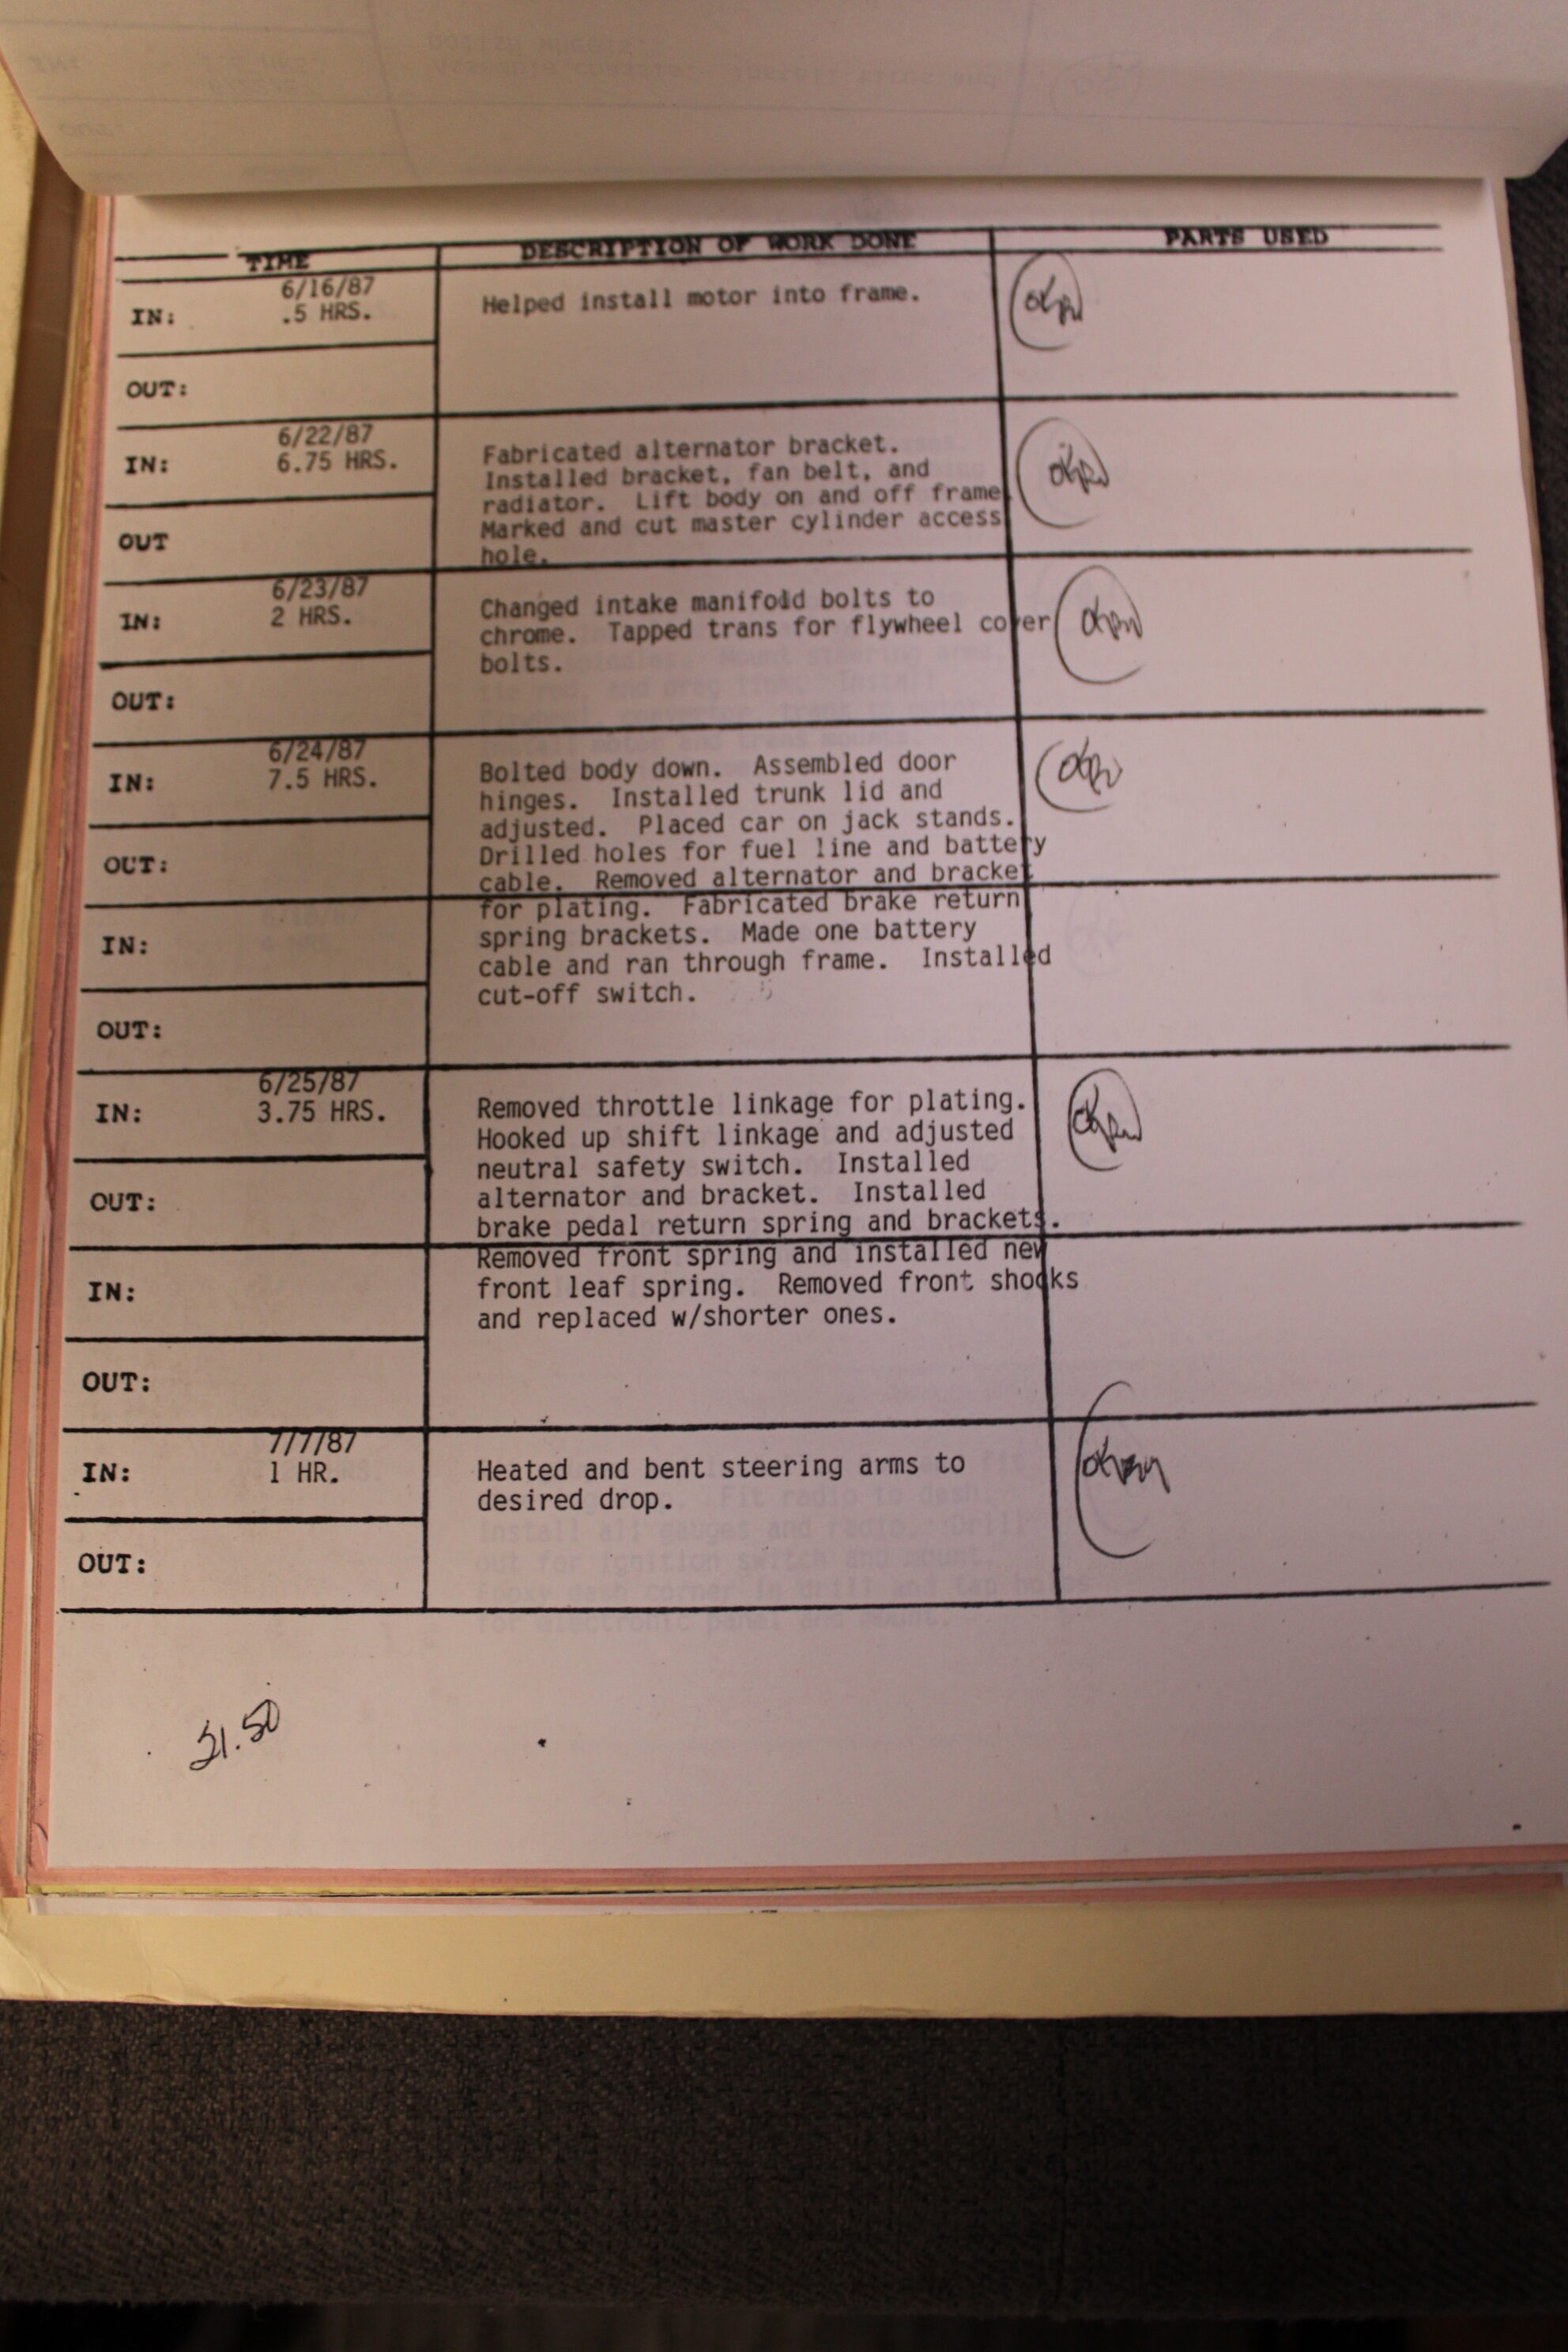 TIME DESCRIPTION OF WORK DONE PARTS USED
6/16/87
IN: .5 HRS.
Helped install motor into frame.
OUT:
6/22/87
IN: 6.75 HRS.
Fabricated alternator bracket.
Installed bracket, fan belt, and
radiator. Lift body on and off frame
Marked and cut master cylinder access
hole.
OUT
6/23/87
IN: 2 HRS.
Changed intake manifold bolts to
chrome. Tapped trans for flywheel cover
bolts.
OUT:
6/24/87
IN: 7.5 HRS.
Bolted body down. Assembled door
hinges. Installed trunk lid and
adjusted. Placed car on jack stands.
Drilled holes for fuel line and battery
cable. Removed alternator and bracket
OUT:
for plating. Fabricated brake return
spring brackets. Made one battery
cable and ran through frame. Installed
cut-off switch.
IN:
OUT:
6/25/87
IN: 3.75 HRS.
Removed throttle linkage for plating.
Hooked up shift linkage and adjusted
neutral safety switch. Installed
alternator and bracket. Installed
brake pedal return spring and brackets.
OUT:
Removed front spring and installed new
front leaf spring. Removed front shocks
and replaced w/shorter ones.
IN:
OUT:
7/7/87
IN: 1 HR.
Heated and bent steering arms to
desired drop.
OUT:
21.50